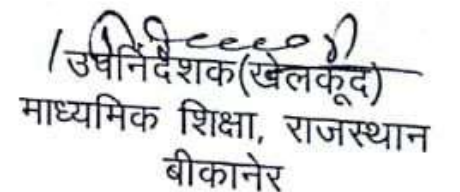 उपनिदेशक(खेलकूद)
माध्यमिक शिक्षा, राजस्थान
बीकानेर